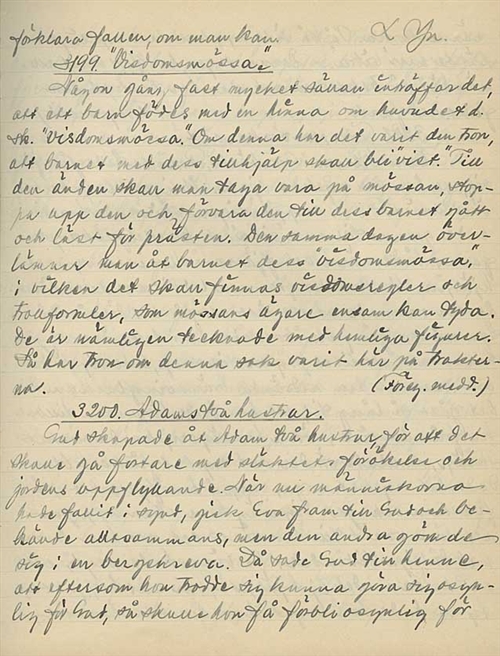 förklara fallen, om man kan. L Yr.
3199. "Visdomsmössa."
Någon gång, fast mycket sällan inträffar det,
att ett barn födes med en hinna om huvudet d.
sk. "Visdomsmössa." Om denna har det varit den tron,
att barnet med dess tillhjälp skall bli "vist." Till
den änden skall man taga vara på mössan, stop-
pa upp den och förvara den till dess barnet gått
och läst för prästen. Den samma dagen över-
lämnar man åt barnet dess "visdomsmössa,"
i vilken det skall finnas visdomsregler och
trollformler, som mössans ägare ensam kan tyda.
De är nämligen tecknade med hemliga figurer.
Så har tron om denna sak varit här på trakter-
na. (Föreg. medd.)
3200. Adams två hustrur.
Gud skapade åt Adam två hustrur för att det
skulle gå fortare med släktets förökelse och
jordens uppfyllande. När nu människorna
hade fallit i synd, gick Eva fram till Gud och be-
kände alltsammans, men den andra gömde
sig i en bergskreva. Då sade Gud till henne,
att eftersom hon trodde sig kunna göra sig osyn-
lig för Gud, så skulle hon få förbli osynlig för